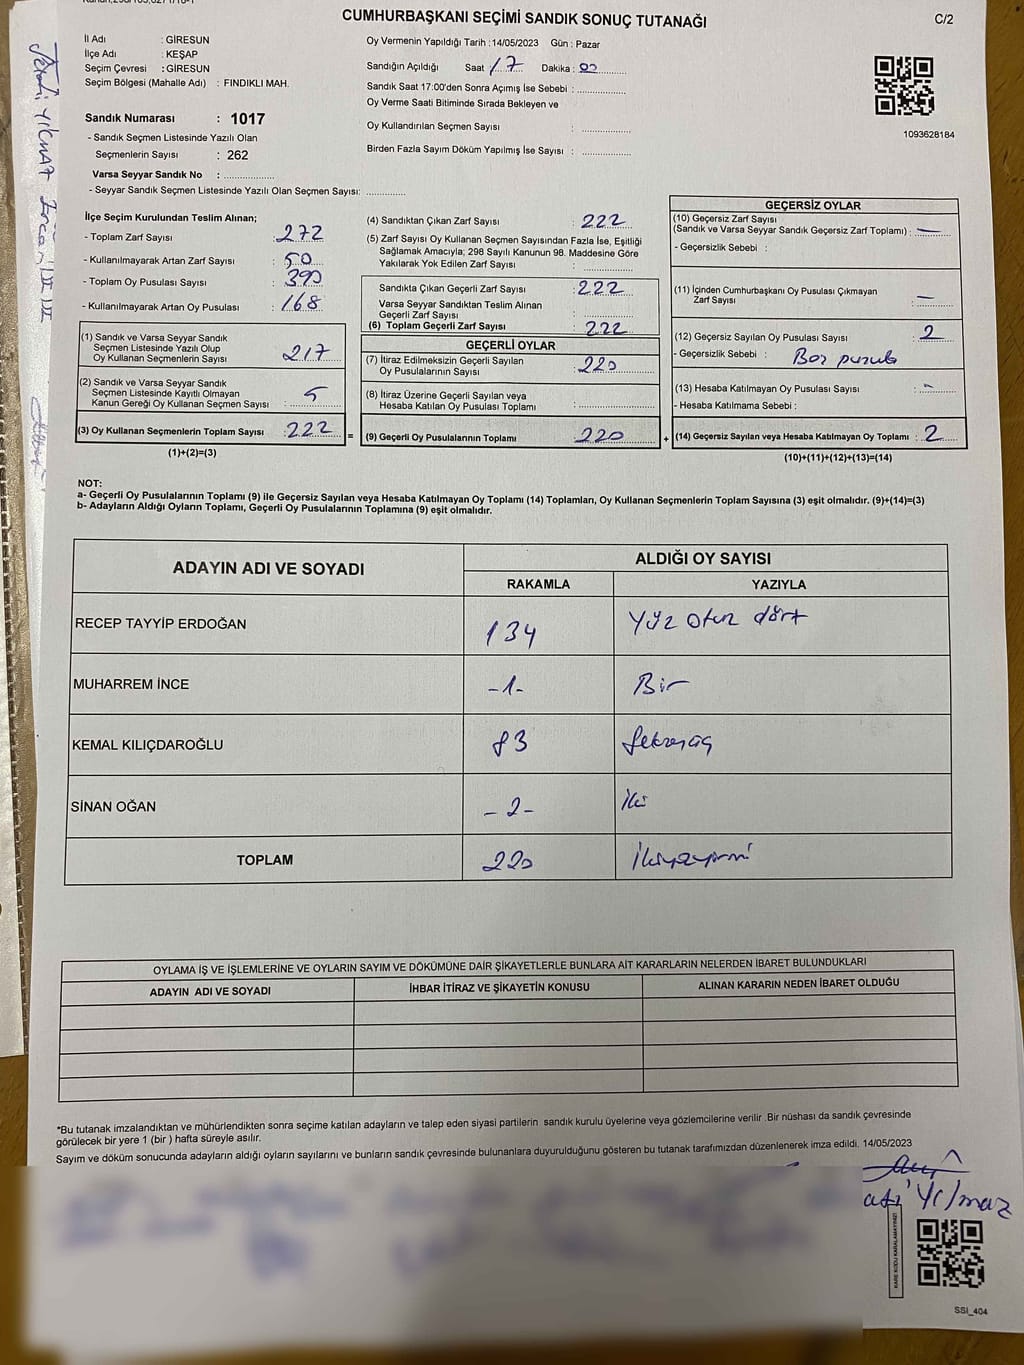 CUMHURBAŞKANI SEÇİMİ SANDIK SONUÇ TUTANAĞI
C/2
İl Adı : GİRESUN
İlçe Adı : KEŞAP
Seçim Çevresi : GİRESUN
Seçim Bölgesi (Mahalle Adı) : FINDIKLI MAH.
Oy Vermenin Yapıldığı Tarih :14/05/2023 Gün : Pazar
Sandığın Açıldığı Saat 17 Dakika : 00
Sandık Saat 17:00'den Sonra Açımış İse Sebebi :
Oy Verme Saati Bitiminde Sırada Bekleyen ve
Oy Kullandırılan Seçmen Sayısı :
Birden Fazla Sayım Döküm Yapılmış İse Sayısı :
1093628184
Sandık Numarası : 1017
- Sandık Seçmen Listesinde Yazılı Olan
Seçmenlerin Sayısı : 262
Varsa Seyyar Sandık No :
- Seyyar Sandık Seçmen Listesinde Yazılı Olan Seçmen Sayısı:
İlçe Seçim Kurulundan Teslim Alınan;
- Toplam Zarf Sayısı : 272
- Kullanılmayarak Artan Zarf Sayısı : 50
- Toplam Oy Pusulası Sayısı : 390
- Kullanılmayarak Artan Oy Pusulası : 168
(1) Sandık ve Varsa Seyyar Sandık
Seçmen Listesinde Yazılı Olup
Oy Kullanan Seçmenlerin Sayısı : 217
(2) Sandık ve Varsa Seyyar Sandık
Seçmen Listesinde Kayıtlı Olmayan
Kanun Gereği Oy Kullanan Seçmen Sayısı : 5
(3) Oy Kullanan Seçmenlerin Toplam Sayısı : 222 =
(1)+(2)=(3)
(4) Sandıktan Çıkan Zarf Sayısı : 222
(5) Zarf Sayısı Oy Kullanan Seçmen Sayısından Fazla İse, Eşitliği
Sağlamak Amacıyla; 298 Sayılı Kanunun 98. Maddesine Göre
Yakılarak Yok Edilen Zarf Sayısı :
Sandıkta Çıkan Geçerli Zarf Sayısı : 222
Varsa Seyyar Sandıktan Teslim Alınan
Geçerli Zarf Sayısı :
(6) Toplam Geçerli Zarf Sayısı : 222
GEÇERLİ OYLAR
(7) İtiraz Edilmeksizin Geçerli Sayılan
Oy Pusulalarının Sayısı : 220
(8) İtiraz Üzerine Geçerli Sayılan veya
Hesaba Katılan Oy Pusulası Toplamı :
(9) Geçerli Oy Pusulalarının Toplamı : 220 +
GEÇERSİZ OYLAR
(10) Geçersiz Zarf Sayısı
(Sandık ve Varsa Seyyar Sandık Geçersiz Zarf Toplamı) : —
- Geçersizlik Sebebi :
(11) İçinden Cumhurbaşkanı Oy Pusulası Çıkmayan
Zarf Sayısı : —
(12) Geçersiz Sayılan Oy Pusulası Sayısı : 2
- Geçersizlik Sebebi : Boş pusula
(13) Hesaba Katılmayan Oy Pusulası Sayısı : -
- Hesaba Katılmama Sebebi :
(14) Geçersiz Sayılan veya Hesaba Katılmayan Oy Toplamı : 2
(10)+(11)+(12)+(13)=(14)
NOT:
a- Geçerli Oy Pusulalarının Toplamı (9) ile Geçersiz Sayılan veya Hesaba Katılmayan Oy Toplamı (14) Toplamları, Oy Kullanan Seçmenlerin Toplam Sayısına (3) eşit olmalıdır. (9)+(14)=(3)
b- Adayların Aldığı Oyların Toplamı, Geçerli Oy Pusulalarının Toplamına (9) eşit olmalıdır.
ADAYIN ADI VE SOYADI
ALDIĞI OY SAYISI
RAKAMLA YAZIYLA
RECEP TAYYİP ERDOĞAN 134 Yüz otuz dört
MUHARREM İNCE -1- Bir
KEMAL KILIÇDAROĞLU 83 Seksenüç
SİNAN OĞAN -2- İki
TOPLAM 220 İkiyüzyirmi
OYLAMA İŞ VE İŞLEMLERİNE VE OYLARIN SAYIM VE DÖKÜMÜNE DAİR ŞİKAYETLERLE BUNLARA AİT KARARLARIN NELERDEN İBARET BULUNDUKLARI
ADAYIN ADI VE SOYADI
İHBAR İTİRAZ VE ŞİKAYETİN KONUSU
ALINAN KARARIN NEDEN İBARET OLDUĞU
*Bu tutanak imzalandıktan ve mühürlendikten sonra seçime katılan adayların ve talep eden siyasi partilerin sandık kurulu üyelerine veya gözlemcilerine verilir .Bir nüshası da sandık çevresinde
görülecek bir yere 1 (bir ) hafta süreyle asılır.
Sayım ve döküm sonucunda adayların aldığı oyların sayılarını ve bunların sandık çevresinde bulunanlara duyurulduğunu gösteren bu tutanak tarafımızdan düzenlenerek imza edildi. 14/05/2023
Yılmaz
KARE KODU KARALAMAYINIZ!
SSI_404